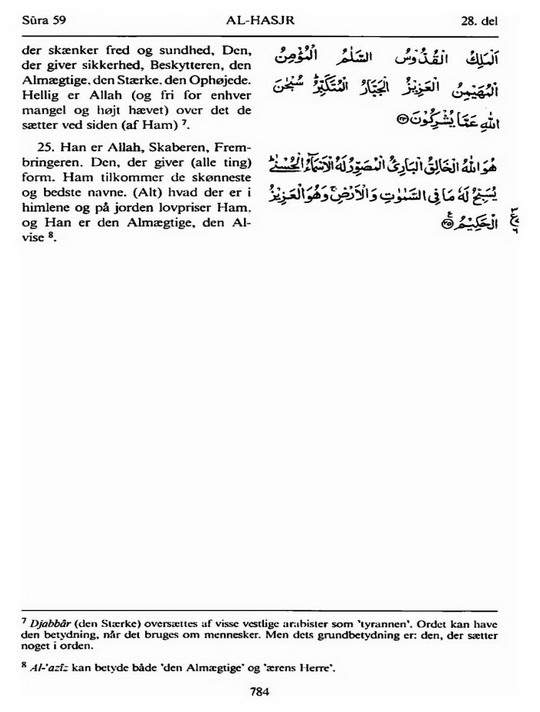 Sûra 59 AL-HASJR 28. del
der skænker fred og sundhed, Den,
der giver sikkerhed, Beskytteren, den
Almægtige, den Stærke, den Ophøjede.
Hellig er Allah (og fri for enhver
mangel og højt hævet) over det de
sætter ved siden (af Ham) 7.
25. Han er Allah, Skaberen, Frem-
bringeren. Den, der giver (alle ting)
form. Ham tilkommer de skønneste
og bedste navne. (Alt) hvad der er i
himlene og på jorden lovpriser Ham,
og Han er den Almægtige, den Al-
vise 8.
اَلْمَلِكُ الْقُدُّوْسُ السَّلٰمُ الْمُؤْمِنُ
الْمُهَيْمِنُ الْعَزِيْزُ الْجَبَّارُ الْمُتَكَبِّرُ سُبْحٰنَ
اللّٰهِ عَمَّا يُشْرِكُوْنَ ﴿۲۴﴾
هُوَ اللّٰهُ الْخَالِقُ الْبَارِئُ الْمُصَوِّرُ لَهُ الْاَسْمَآءُ الْحُسْنٰى
يُسَبِّحُ لَهٗ مَا فِى السَّمٰوٰتِ وَالْاَرْضِ وَهُوَ الْعَزِيْزُ
الْحَكِيْمُ ﴿۲۵﴾
7 Djabbâr (den Stærke) oversættes af visse vestlige arabister som 'tyrannen'. Ordet kan have
den betydning, når det bruges om mennesker. Men dets grundbetydning er: den, der sætter
noget i orden.
8 Al-'azîz kan betyde både 'den Almægtige' og 'ærens Herre'.
784